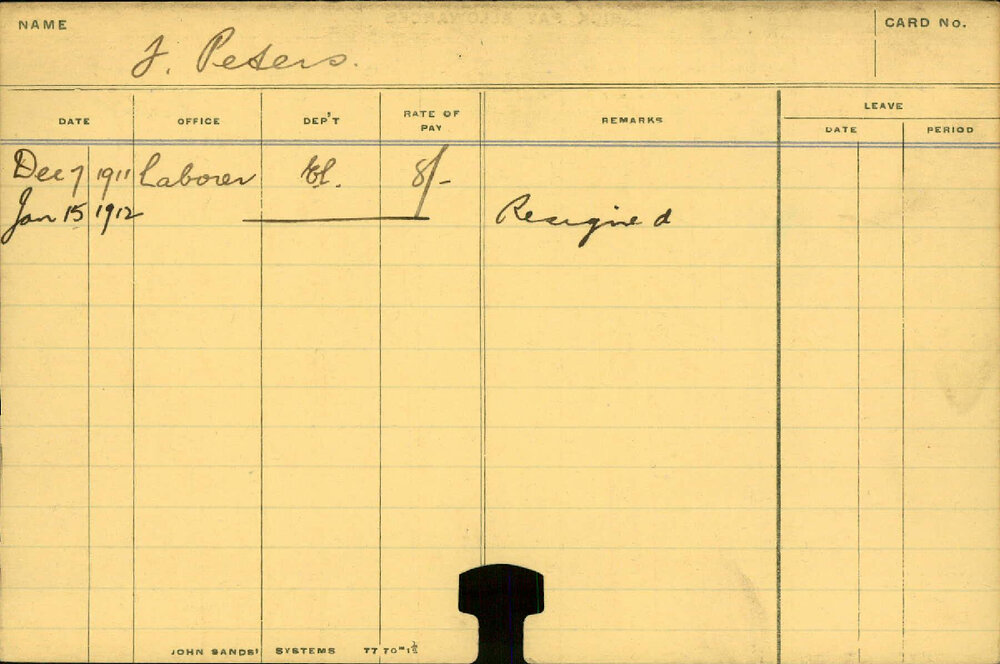 NAME
CARD No.
Peters.
DATE OFFICE DEP'T RATE OF PAY REMARKS LEAVE
DATE PERIOD
Dec 7 1911 Laborer El. 8/-
Jan 15 1912 Resigned
JOHN SANDS' SYSTEMS